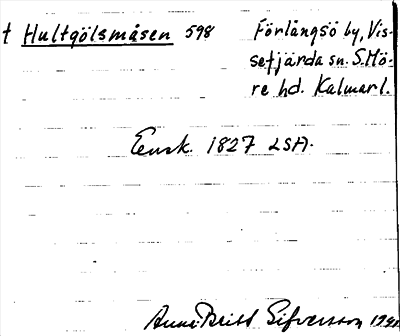 t Hultgölsmåsen 598 Förlångsö by, Vis-
sefjärda sn. S. Mö-
re hd. Kalmar l.
Ensk. 1827 LSA.
Anna-Britt Sifversson